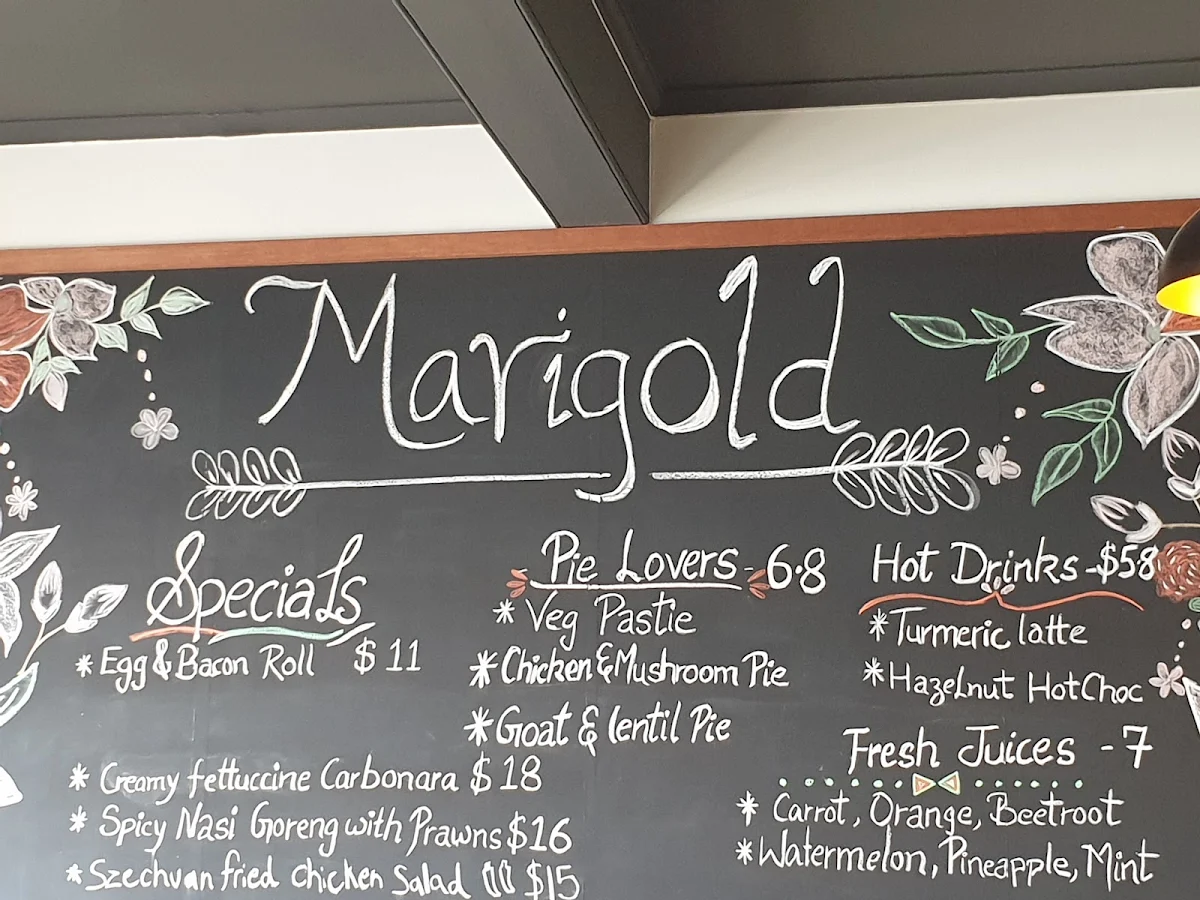 Marigold
Specials
* Egg & Bacon Roll $ 11
* Creamy fettuccine Carbonara $ 18
* Spicy Nasi Goreng with Prawns $16
* Szechuan fried chicken Salad $15
Pie Lovers - 6.8
* Veg Pastie
* Chicken & Mushroom Pie
* Goat & lentil Pie
Hot Drinks - $58
* Turmeric latte
* Hazelnut Hot Choc
Fresh Juices - 7
* Carrot, Orange, Beetroot
* Watermelon, Pineapple, Mint